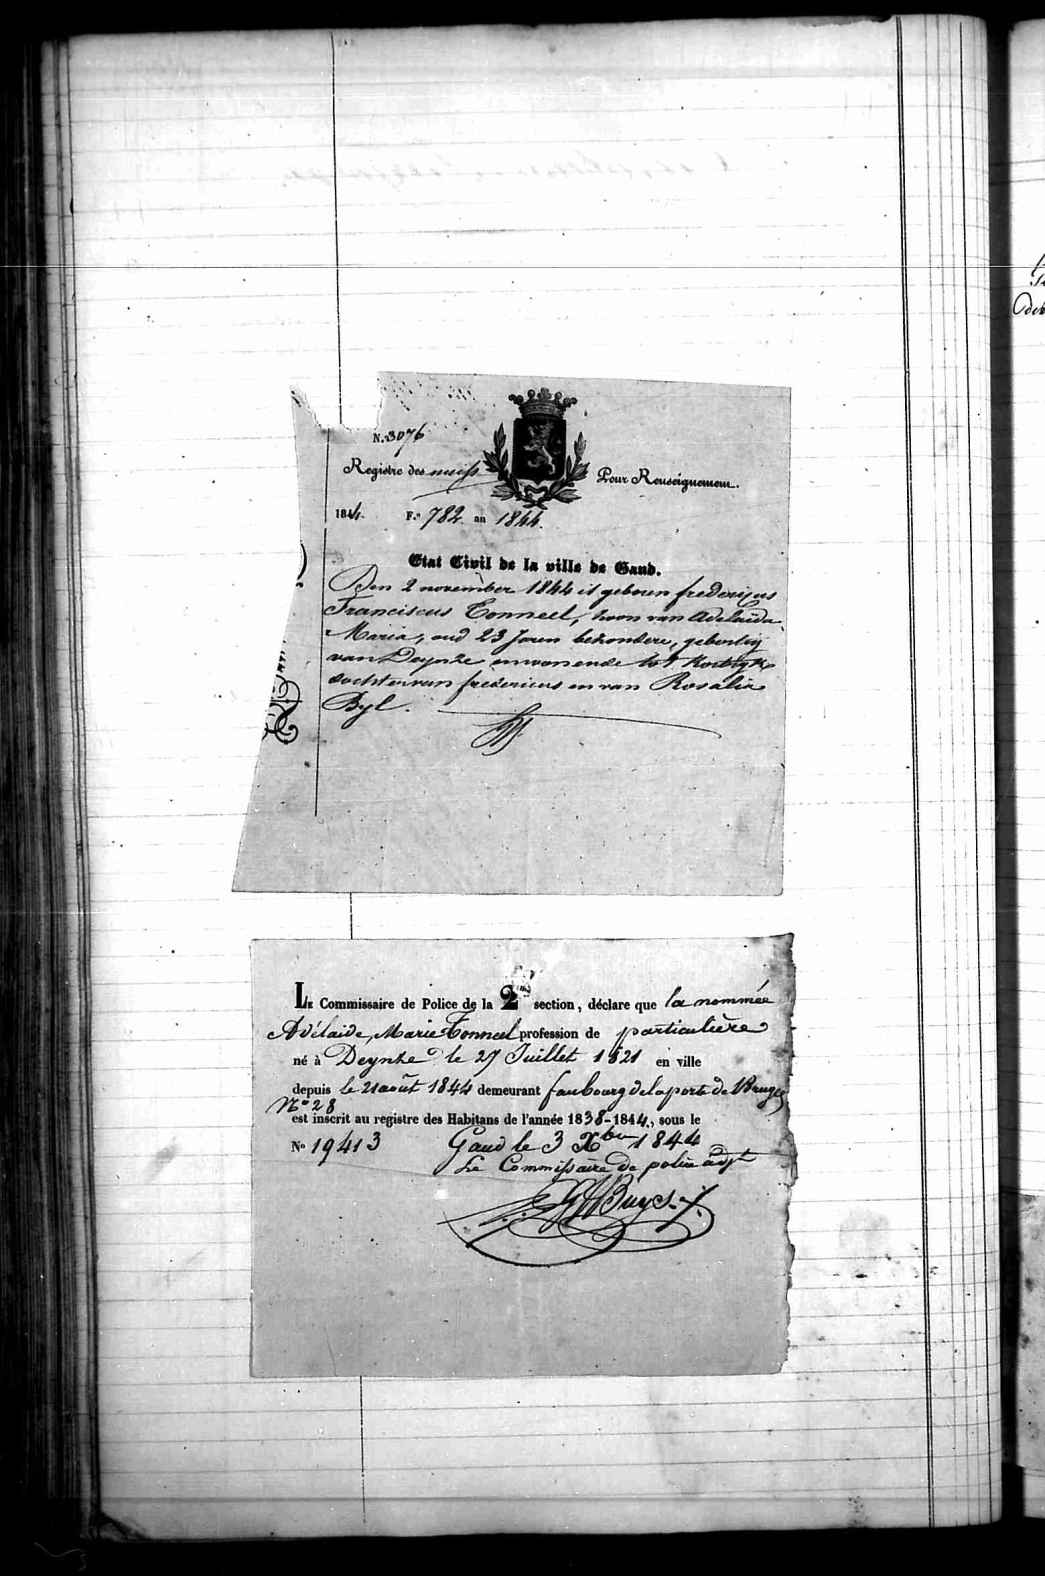 N. 3076
Registre des naiss
Pour Renseignement.
1844. F.º 782 an 1844.
Etat Civil de la ville de Gand.
Den 2 november 1844 is geboren fredericus
Franciscus Tonneel, zoon van Adelaïda
Maria, oud 23 Jaren bezondere, geboortig
van Deynze en wonende tot
dochter van fredericus en van Rosalia
Byl.
Le Commissaire de Police de la 2me section, déclare que la nommée
Adélaide, Marie Tonneel profession de particulière
né à Deynze le 27 Juillet 1821 en ville
depuis le 21 août 1844 demeurant faubourg de la porte de Bruges
Nº 28
est inscrit au registre des Habitans de l'année 1838-1844, sous le
Nº 19413 Gand le 3 Xbre 1844
Le Commissaire de police adjt
Buyst